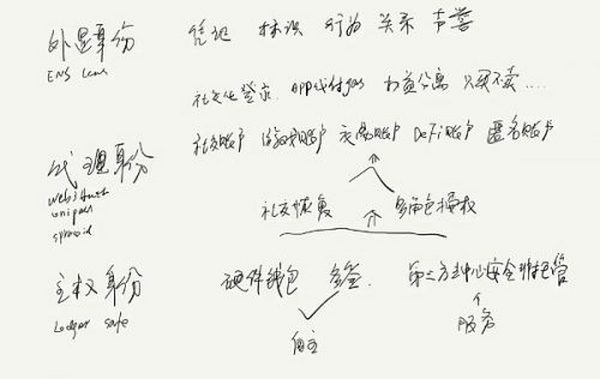 外显身份 凭证 标识 行为 关系 声誉
ENS Lens
社交化登录 APP代付gas 权益分离 只买不卖....
代理身份 社交账户 游戏账户 交易账户 DeFi账户 匿名账户
web3Auth
unipass
社交恢复 多角色授权
主权身份 硬件钱包 多签 第三方去中心安全非托管
Ledger safe
自主 服务